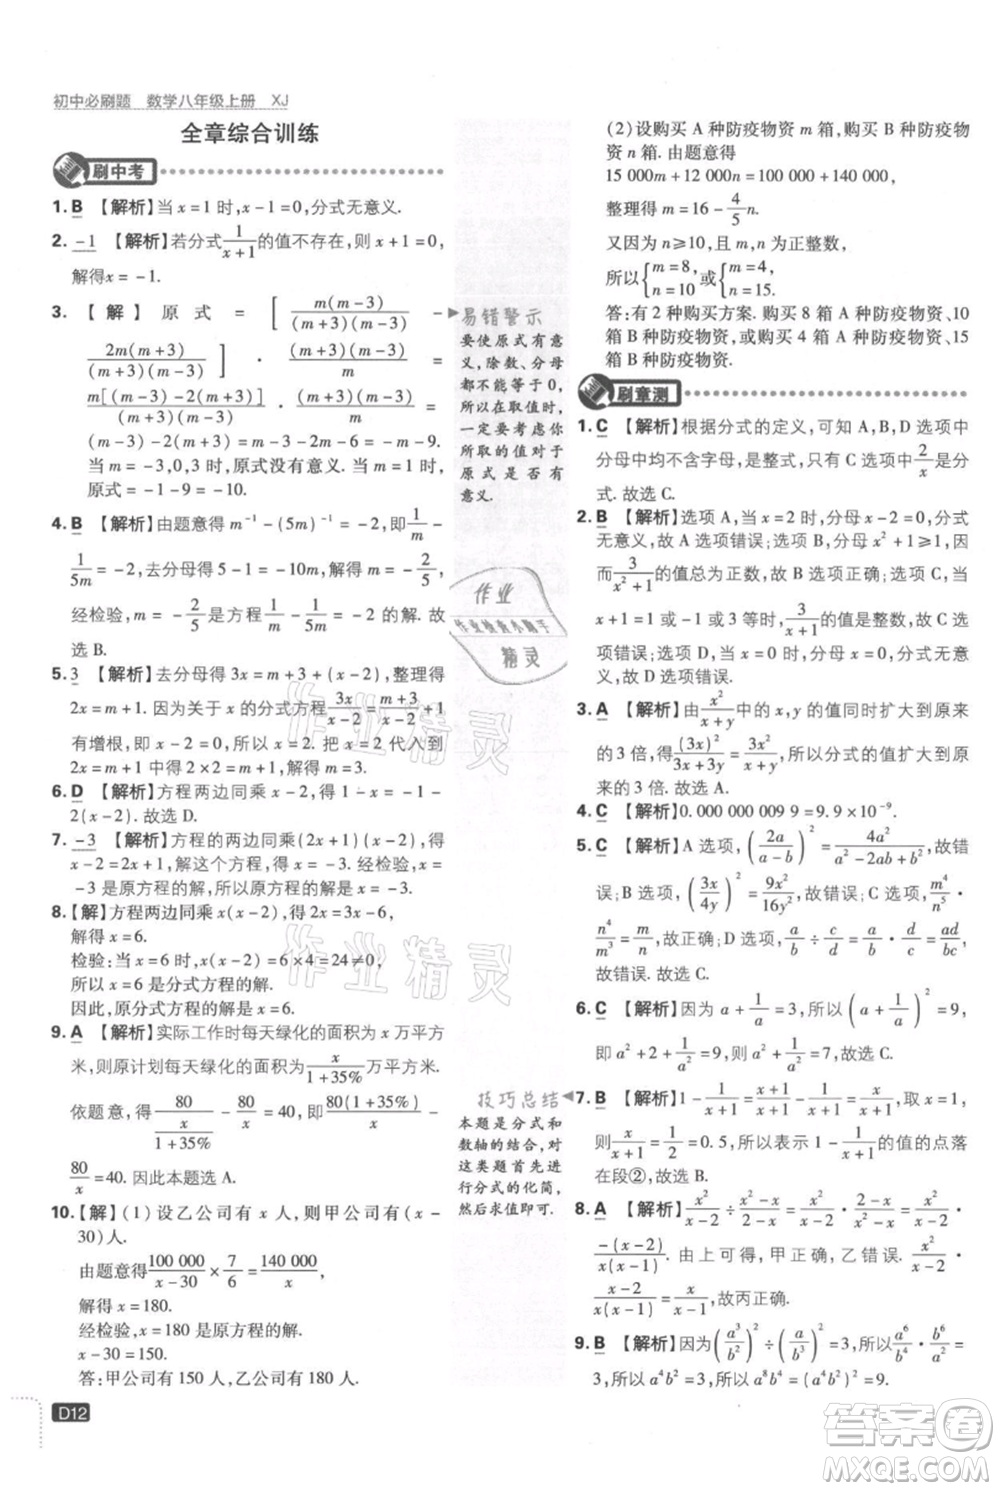 初中必刷题 数学八年级上册 XJ
全章综合训练
刷中考
1. B 【解析】当 x = 1 时, x − 1 = 0, 分式无意义.
2. −1 【解析】若分式 1/(x+1) 的值不存在, 则 x + 1 = 0,
解得 x = −1.
3. 【解】原式 = [ m(m−3)/((m+3)(m−3)) −
2m(m+3)/((m+3)(m−3)) ] · (m+3)(m−3)/m =
m[(m−3)−2(m+3)]/((m+3)(m−3)) · (m+3)(m−3)/m =
m − 3 − 2m − 6 = −m − 9.
当 m = −3,0,3 时, 原式没有意义. 当 m = 1 时,
原式 = −m − 9 = −1 − 9 = −10.
4. B 【解析】由题意得 m⁻¹ − (5m)⁻¹ = −2, 即 1/m −
1/5m = −2, 去分母得 5 − 1 = −10m, 解得 m = −2/5,
经检验, m = −2/5 是方程 1/m − 1/5m = −2 的解. 故
选 B.
5. 3 【解析】去分母得 3x = m + 3 + (x − 2), 整理得
2x = m + 1. 因为关于 x 的分式方程 3x/(x−2) = (m+3)/(x−2) + 1
有增根, 即 x − 2 = 0, 所以 x = 2. 把 x = 2 代入到
2x = m + 1 中得 2 × 2 = m + 1, 解得 m = 3.
6. D 【解析】方程两边同乘 x − 2, 得 1 − x = −1 −
2(x − 2). 故选 D.
7. −3 【解析】方程的两边同乘(2x + 1)(x − 2), 得
x − 2 = 2x + 1, 解这个方程, 得 x = −3. 经检验, x =
−3 是原方程的解, 所以原方程的解是 x = −3.
8. 【解】方程两边同乘 x(x − 2), 得 2x = 3x − 6,
解得 x = 6.
检验: 当 x = 6 时, x(x − 2) = 6 × 4 = 24 ≠ 0,
所以 x = 6 是分式方程的解.
因此, 原分式方程的解是 x = 6.
9. A 【解析】实际工作时每天绿化的面积为 x 万平方
米, 则原计划每天绿化的面积为 x/(1+35%) 万平方米,
依题意, 得 80/(x/(1+35%)) − 80/x = 40, 即 80(1+35%)/x −
80/x = 40. 因此本题选 A.
10. 【解】(1) 设乙公司有 x 人, 则甲公司有(x −
30)人.
由题意得 100 000/(x−30) × 7/6 = 140 000/x,
解得 x = 180.
经检验, x = 180 是原方程的解.
x − 30 = 150.
答: 甲公司有 150 人, 乙公司有 180 人.
D12
易错警示
要使原式有意
义, 除数、分母
都不能等于 0,
所以在取值时,
一定要考虑你
所取的值对于
原式是否有
意义.
技巧总结
本题是分式和
数轴的结合, 对
这类题首先进
行分式的化简,
然后求值即可.
(2) 设购买 A 种防疫物资 m 箱, 购买 B 种防疫物
资 n 箱. 由题意得
15 000m + 12 000n = 100 000 + 140 000,
整理得 m = 16 − 4/5 n.
又因为 n ≥ 10, 且 m, n 为正整数,
所以 {m = 8, n = 10 或 {m = 4, n = 15.
答: 有 2 种购买方案. 购买 8 箱 A 种防疫物资、10
箱 B 种防疫物资, 或购买 4 箱 A 种防疫物资、15
箱 B 种防疫物资.
刷章测
1. C 【解析】根据分式的定义, 可知 A, B, D 选项中
分母中均不含字母, 是整式, 只有 C 选项中 2/x 是分
式. 故选 C.
2. B 【解析】选项 A, 当 x = 2 时, 分母 x − 2 = 0, 分式
无意义, 故 A 选项错误; 选项 B, 分母 x² + 1 ≥ 1, 因
而 3/(x²+1) 的值总为正数, 故 B 选项正确; 选项 C, 当
x + 1 = 1 或 −1 或 3 或 −3 时, 3/(x+1) 的值是整数, 故 C 选
项错误; 选项 D, 当 x = 0 时, 分母 x = 0, 分式无意
义, 故 D 选项错误. 故选 B.
3. A 【解析】由 x²/(x+y) 中的 x, y 的值同时扩大到原来
的 3 倍, 得 (3x)²/(3x+3y) = 3x²/(x+y), 所以分式的值扩大到原
来的 3 倍. 故选 A.
4. C 【解析】0.000 000 009 9 = 9.9 × 10⁻⁹.
5. C 【解析】A 选项, (2a/(a−b))² = 4a²/(a²−2ab+b²), 故错
误; B 选项, (3x/4y)² = 9x²/16y², 故错误; C 选项, m⁴/n⁵ ·
n⁴/m³ = m/n, 故正确; D 选项, a/b ÷ c/d = a/b · d/c = ad/bc,
故错误. 故选 C.
6. C 【解析】因为 a + 1/a = 3, 所以 (a + 1/a)² = 9,
即 a² + 2 + 1/a² = 9, 则 a² + 1/a² = 7, 故选 C.
7. B 【解析】1 − x/(x+1) = (x+1)/(x+1) − x/(x+1) = 1/(x+1), 取 x = 1,
则 1/(x+1) = 1/(1+1) = 0.5, 所以表示 1 − x/(x+1) 的值的点落
在段②, 故选 B.
8. A 【解析】x²/(x−2) ÷ x²/(x−2) = x²/(x−2) ·
−(x−2)/(x(x−1)). 由上可得, 甲正确, 乙错误. x²/(x−2) ·
−(x−2)/(x(x−1)) = −x/(x−1), 故丙正确. 故选 A.
9. B 【解析】因为 (a³/b²)² ÷ (a/b³)² = 3, 所以 a⁶/b⁴ · b⁶/a² =
3, 所以 a⁴b² = 3, 所以 a⁸b⁴ = (a⁴b²)² = 9.
作业
作业检查小助手
精灵
作业精灵
作业精灵
答案卷
MXQE.COM